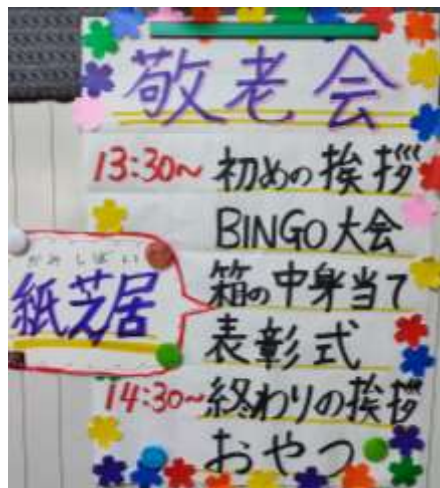 敬老会
13:30～ 初めの挨拶
BINGO大会
かみしばい
紙芝居
箱の中身当て
表彰式
14:30～終わりの挨拶
おやつ